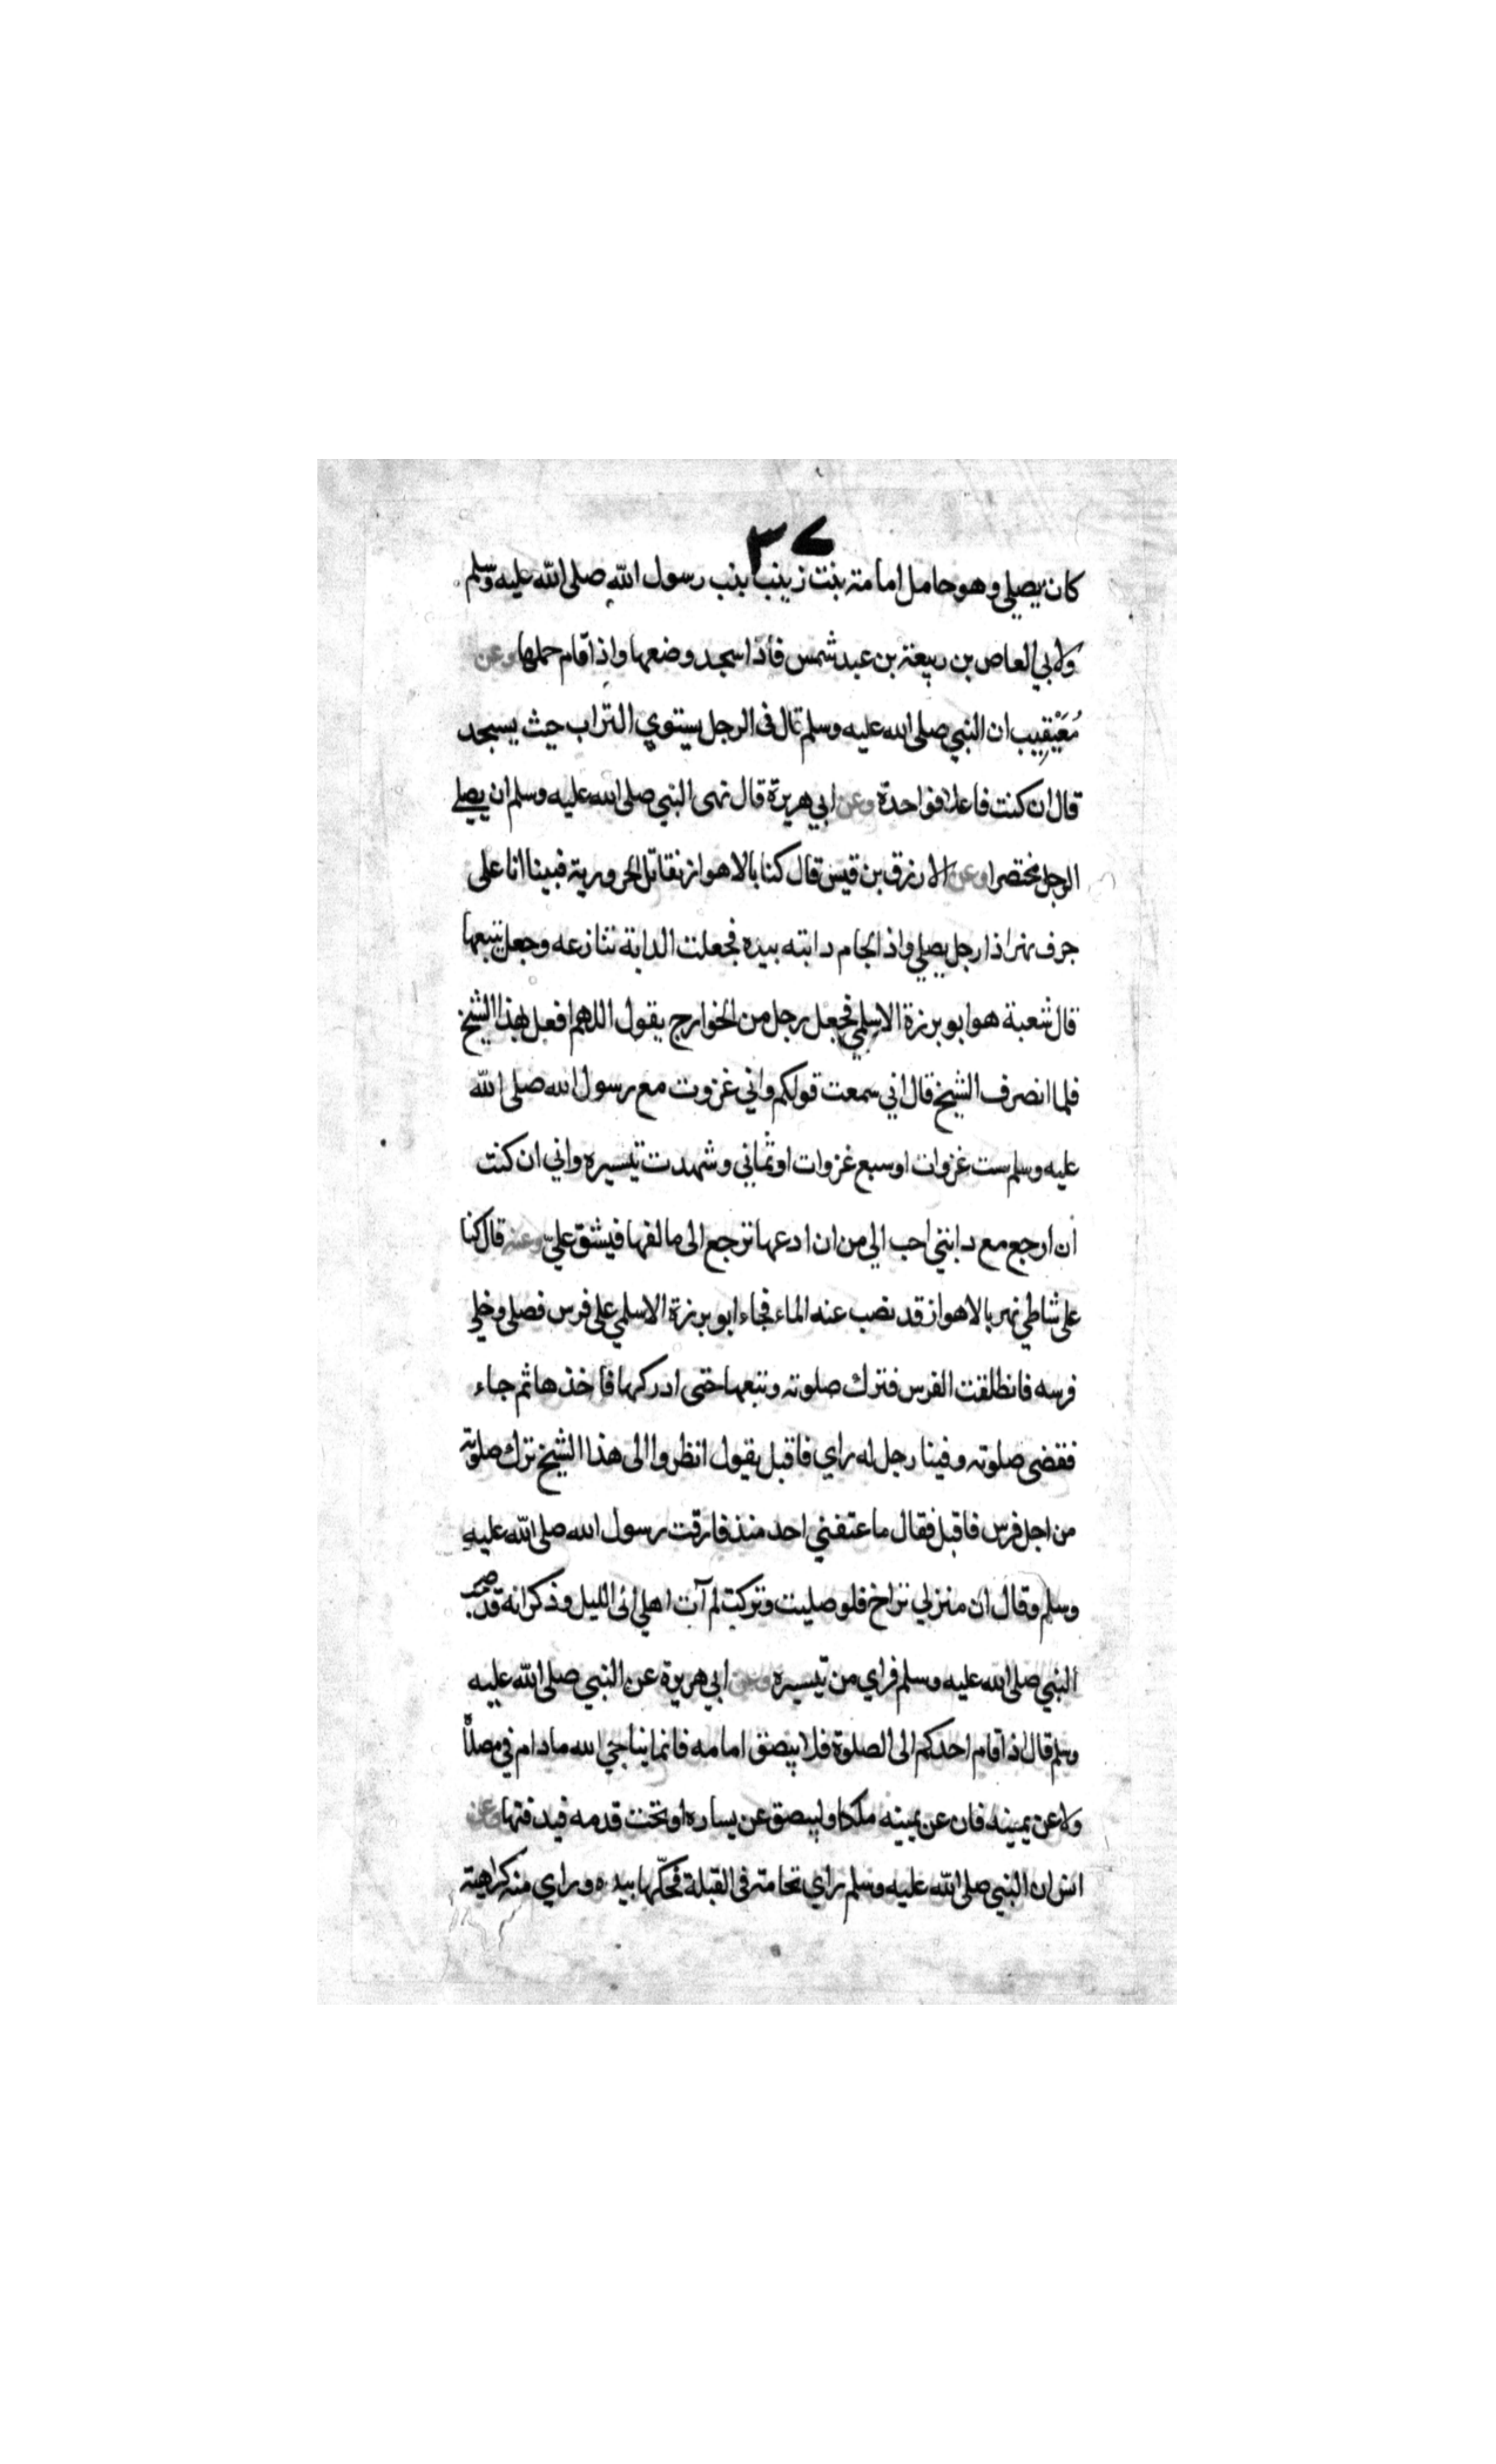 ٣٧
كان يصلي وهو حامل امامة بنت زينب بنت رسول الله صلى الله عليه وسلم
ولابي العاص بن ربيعة بن عبد شمس فاذا سجد وضعها واذا قام حملها وعن
مُعَيْقِيب ان النبي صلى الله عليه وسلم قال في الرجل يستوي التراب حيث يسجد
قال ان كنت فاعلا فواحدة وعن ابي هريرة قال نهى النبي صلى الله عليه وسلم ان يصلي
الرجل مختصرا وعن الازرق بن قيس قال كنا بالاهواز نقاتل الحرورية فبينا انا على
جرف نهر اذا رجل يصلي واذا لجام دابته بيده فجعلت الدابة تنازعه وجعل يتبعها
قال شعبة هو ابو برزة الاسلمي فجعل رجل من الخوارج يقول اللهم افعل بهذا الشيخ
فلما انصرف الشيخ قال اني سمعت قولكم واني غزوت مع رسول الله صلى الله
عليه وسلم ست غزوات او سبع غزوات او ثماني وشهدت تيسيره واني ان كنت
ان ارجع مع دابتي احب الي من ان ادعها ترجع الى مالفها فيشق علي وعنه قال كنا
على شاطي نهر بالاهواز قد نضب عنه الماء فجاء ابو برزة الاسلمي على فرس فصلى وخلي
فرسه فانطلقت الفرس فترك صلوته وتبعها حتى ادركها فاخذها ثم جاء
فقضى صلوته وفينا رجل له راي فاقبل يقول انظروا الى هذا الشيخ ترك صلوته
من اجل فرس فاقبل فقال ما عنفني احد منذ فارقت رسول الله صلى الله عليه
وسلم وقال ان منزلي تراخ فلو صليت وتركت لم آت اهلي الى الليل وذكر انه قد صحب
النبي صلى الله عليه وسلم فراي من تيسيره وعن ابي هريرة عن النبي صلى الله عليه
وسلم قال اذا قام احدكم الى الصلوة فلا يبصق امامه فانما يناجي الله ما دام في مصلاه
ولا عن يمينه فان عن يمينه ملكا وليبصق عن يساره او تحت قدمه فيدفنها وعن
انس ان النبي صلى الله عليه وسلم راي نخامة في القبلة فحكّها بيده وراي منه كراهية